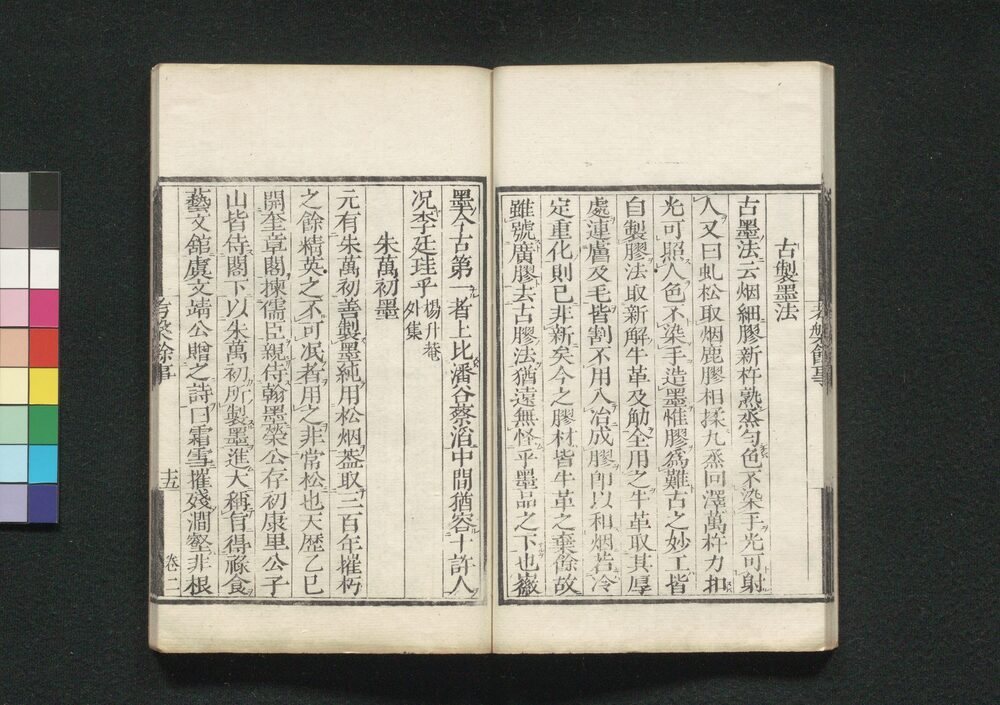 古製墨法
古墨法云烟細膠新杵熟蒸匀色不染手光可射
人又曰虬松取烟鹿膠相揉九蒸回澤萬杵力扣
光可照人色不染手造墨惟膠爲難古之妙工皆
自製膠法取新解牛革及觔全用之牛革取其厚
處連膚及毛皆割不用入冶成膠即以和烟若冷
定重化則已非新矣今之膠材皆牛革之棄餘故
雖號廣膠去古膠法猶遠無怪乎墨品之下也
墨今古第一者上比潘谷蔡滔中間猶容十許人
况李廷珪乎楊升菴
外集
朱萬初墨
元有朱萬初善製墨純用松烟葢取三百年摧朽
之餘精英之不可泯者用之非常松也天歷乙巳
開奎章閣揀儒臣親侍翰墨榮公存初康里公子
山皆侍閣下以朱萬初所製墨進大稱旨得祿食
藝文館虞文靖公贈之詩曰霜雪摧殘澗壑非根
考槃餘事
十五
卷二